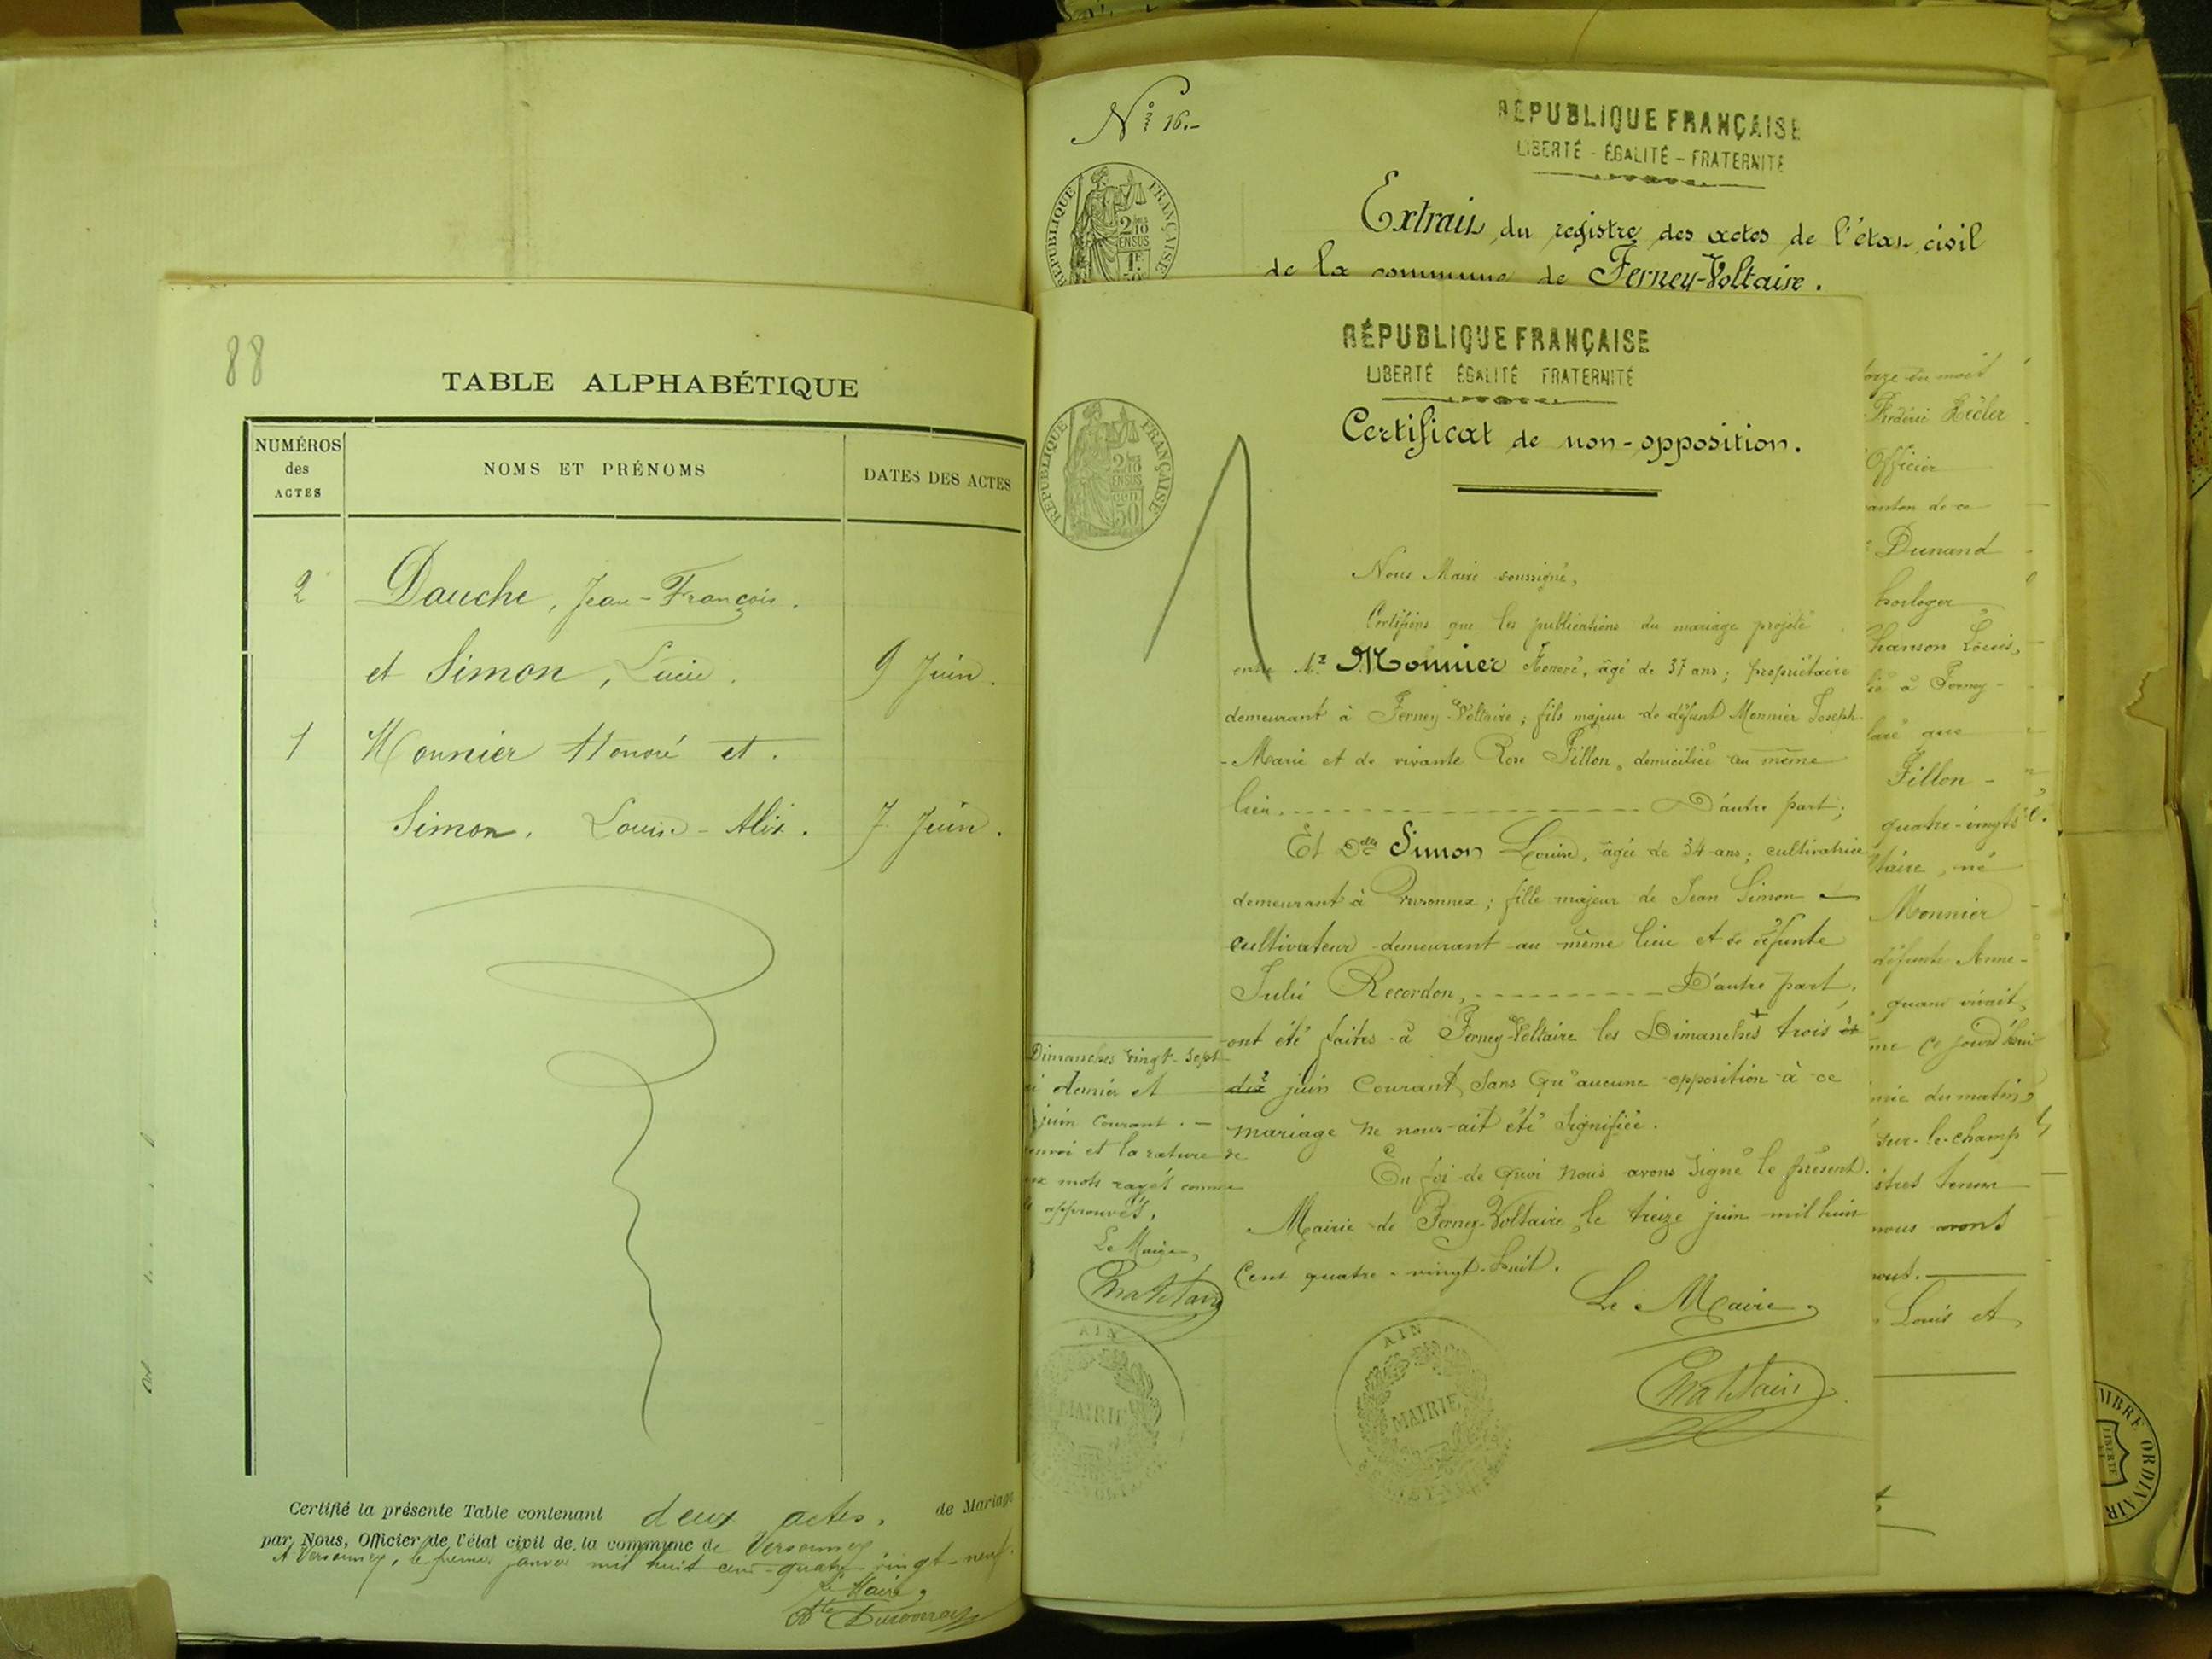 88
TABLE ALPHABÉTIQUE
NUMÉROS des ACTES
NOMS ET PRÉNOMS
DATES DES ACTES
2 Dauche, Jean-François.
et Simon, Lucie. 9 Juin.
1 Monnier Honoré et.
Simon, Louise-Alix. 7 Juin.
Certifié la présente Table contenant deux actes. de Mariage
par Nous, Officier de l'état civil de la commune de Versonnex
A Versonnex, le premier janvier mil huit cent-quatre vingt-neuf.
Le Maire,
Nº 16.-
RÉPUBLIQUE FRANÇAISE
LIBERTÉ - ÉGALITÉ - FRATERNITÉ
RÉPUBLIQUE FRANÇAISE
2/10 EN SUS
1F
Extrait du registre des actes de l'état civil
de la commune de Ferney-Voltaire.
RÉPUBLIQUE FRANÇAISE
LIBERTÉ ÉGALITÉ FRATERNITÉ
Certificat de non-opposition.
RÉPUBLIQUE FRANÇAISE
2/10 EN SUS
50 cen
1
Nous Maire soussigné,
Certifions que les publications du mariage projeté
entre Mr Monnier Honoré, âgé de 37 ans; propriétaire
demeurant à Ferney-Voltaire; fils majeur de défunt Monnier Joseph
-Marie et de vivante Rose Fillon, domiciliée au même
lieu. D'autre part;
Et Delle Simon Louise, âgée de 34 ans; cultivatrice
demeurant à Versonnex; fille majeur de Jean Simon
cultivateur demeurant au même lieu et de défunte
Julie Recordon, D'autre part,
ont été faites à Ferney-Voltaire les Dimanches trois et
dix juin Courant, Sans qu'aucune opposition à ce
mariage ne nous ait été Signifiée.
En foi de quoi nous avons signé le présent.
Mairie de Ferney-Voltaire, le treize juin mil huit
Cent quatre-vingt-huit.
Le Maire,
AIN
MAIRIE
Dimanches vingt-sept
dernier et
juin courant.
et la rature de
mots rayés comme
approuvés.
Le Maire,
AIN
MAIRIE
du mois
Frédéric
Officier
canton de ce
Dunand
horloger
Louis,
à Ferney-
que
Fillon-
quatre-vingts
né
Monnier
défunte Anne-
quand vivait,
ce jourd'hui
du matin,
sur-le-champ
tenus
nous avons
Louis et
LIBERTÉ